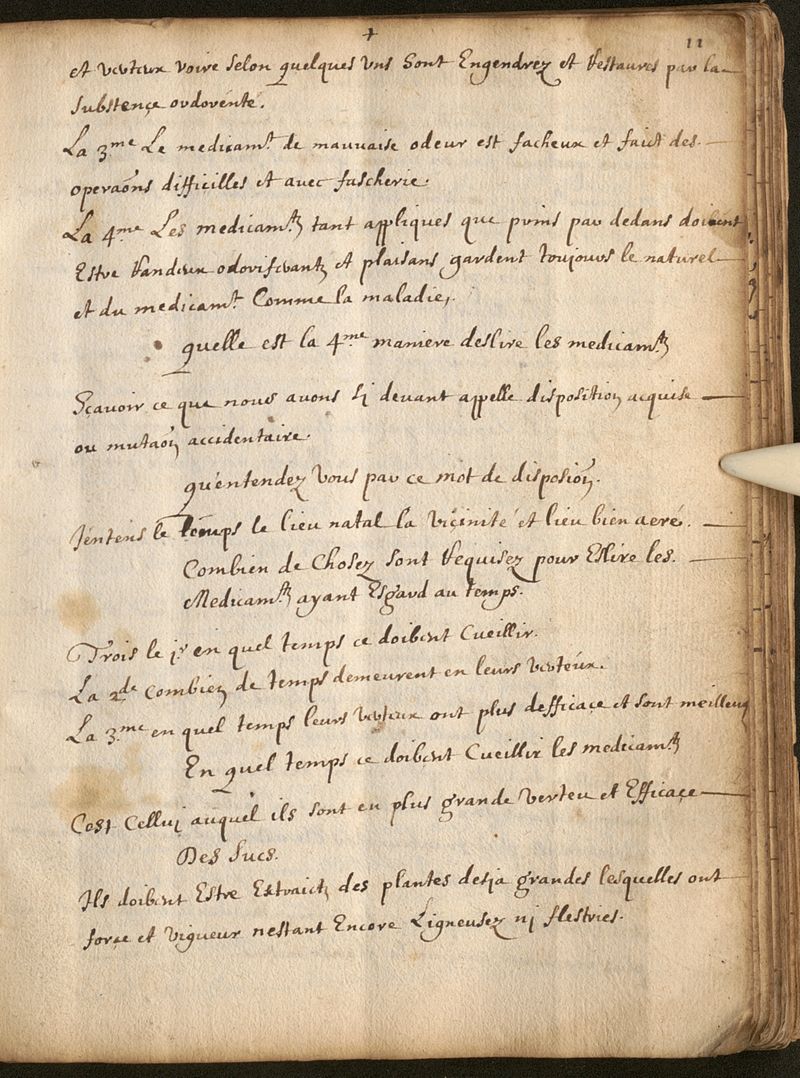 11
et vertux voire selon quelques uns sont Engendrez et Restaures par la
substençe odorénte.
La 3.me Le medicamt de mauvaise odeur est facheux et faict des
operaõns difficilles et avec fascherie.
La 4.me Les medicamts tant appliques que prins par dedans doibvent
Estre Randeux odoriferants et plaisans gardent toujours le naturel
et du medicamt Comme la maladie,
quelle est la 4.me maniere deslire les medicamts
Sçavoir ce que nous avons si devant appelle disposition acquise
ou mutaõn accidentaire.
qu'entendez vous par ce mot de disposion.
Jéntens le temps le lieu natal la viçinité et lieu bien aeré.
Combien de Chosez sont Requisez pour Eslire les
Medicamts ayant Esgard au temps.
Trois le jr en quel temps ce doibvent Cueillir.
La 2.de Combien de temps demeurent en leurs verteux.
La 3.me en quel temps leurs verteux ont plus defficaçe et sont meilleurs
En quel temps ce doibvent Cueillir les medicamts
Cest Celluj auquel ils sont en plus grande verteu et Efficaçe
Des Sucs.
Ils doibvent Estre Extraicts des plantes desja grandes lesquelles ont
forçe et vigueur nestant Encore Ligneusez nj flestries.